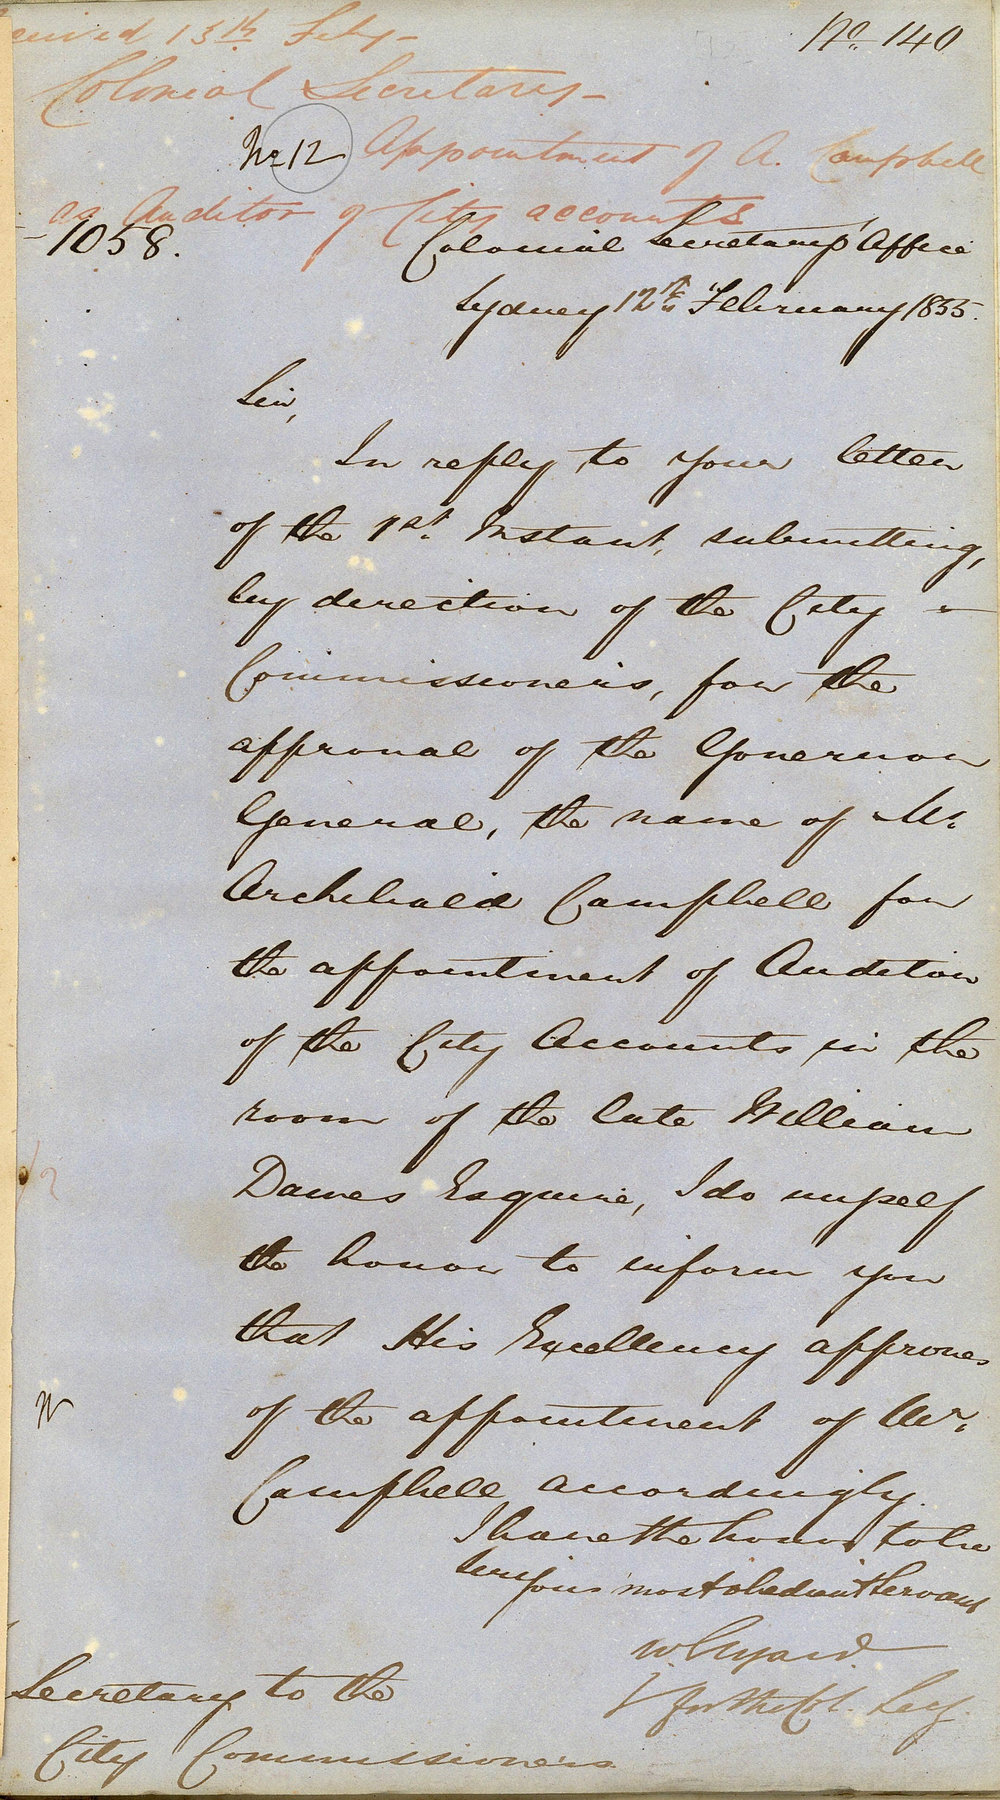 No. 140
ceived 13th Feby -
Colonial Secretary -
No 12 Appointment of A. Campbell
as Auditor of City accounts
- 1058.
Colonial Secretary's Office
Sydney 12th February 1855.
Sir,
In reply to your letter
of the 1st. Instant, submitting,
by direction of the City -
Commissioners, for the
approval of the Governor
General, the name of Mr.
Archibald Campbell for
the appointment of Auditor
of the City Accounts in the
room of the late William
Dawes Esquire, I do myself
the honor to inform you
that His Excellency approves
of the appointment of Mr.
Campbell accordingly.
I have the honor to be
Sir your most obedient Servant
W Elyard
for the Col. Secy.
Secretary to the
City Commissioners